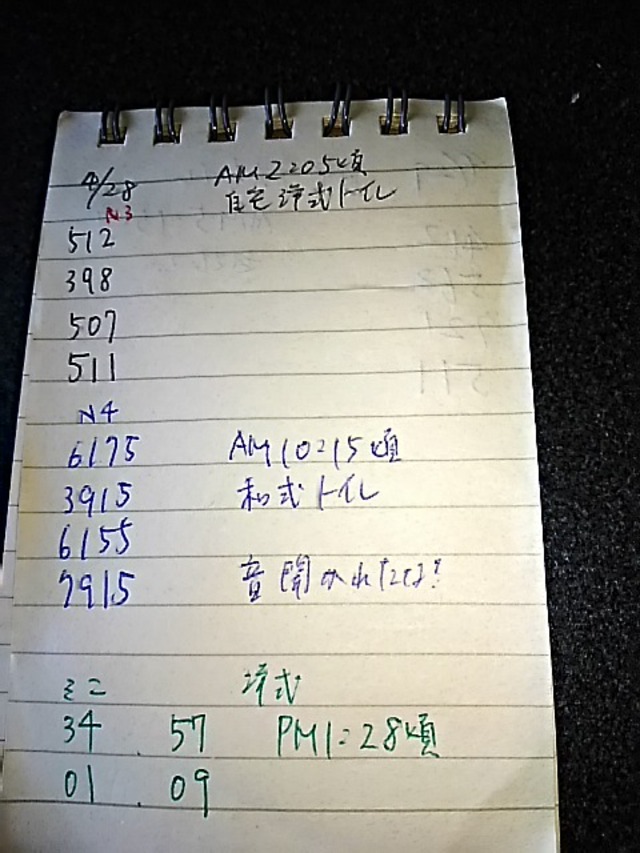 4/28 AM2:05頃
N3 自宅洋式トイレ
512
398
507
511
N4
6175 AM10:15頃
3915 和式トイレ
6155
7915 音聞かれたな!
ミニ 洋式
34 57 PM1:28頃
01 . 09